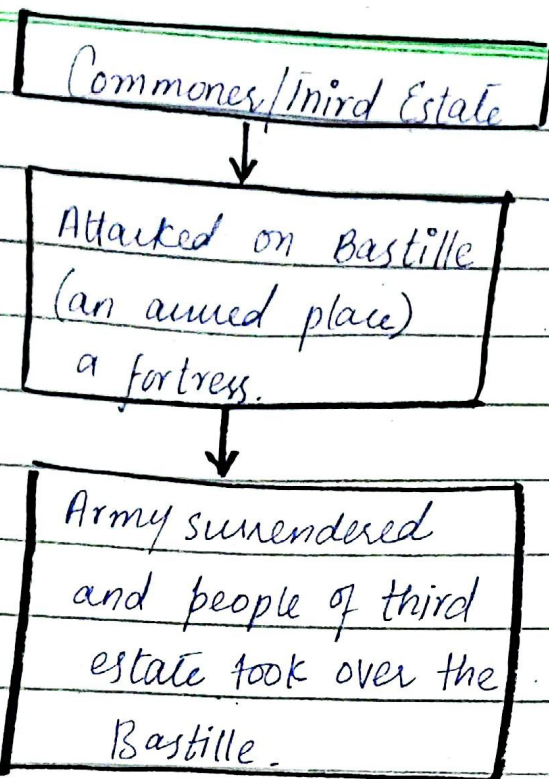 Commoner/Third Estate
Attacked on Bastille
(an armed place)
a fortress.
Army surrendered
and people of third
estate took over the
Bastille.